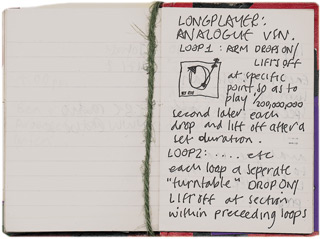 LONGPLAYER:
ANALOGUE VSN.
LOOP 1: ARM DROP ON/
LIFTS OFF
at specific
point so as to
play 1/200,000,000
second later each
drop and lift off after a
set duration.
LOOP2: ..... etc
each loop a seperate
"turntable" DROP ON/
LIFT OFF at section
within preceeding loops